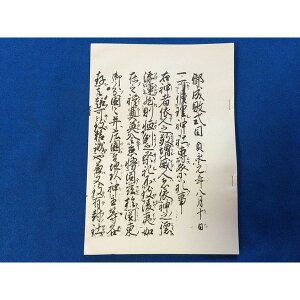 御成敗式目 貞永元年八月十日
一可修理神社専祭祀事
右神者依人之敬増威人者依神之徳
添運然則恒例之祭祀不致陵夷如
在之礼奠莫令怠慢因茲於関東
御分國々并庄園者地頭神主等各
存其趣可致精誠也兼又至有封社